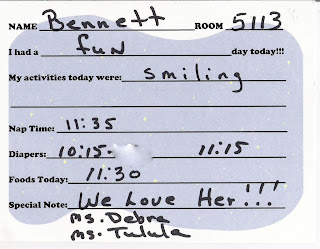 NAME Bennett ROOM 5113
I had a fun day today!!!
My activities today were: smiling
Nap Time: 11:35
Diapers: 10:15- 11:15
Foods Today: 11:30
Special Note: We Love Her!!!
Ms. Debra
Ms. Tulula